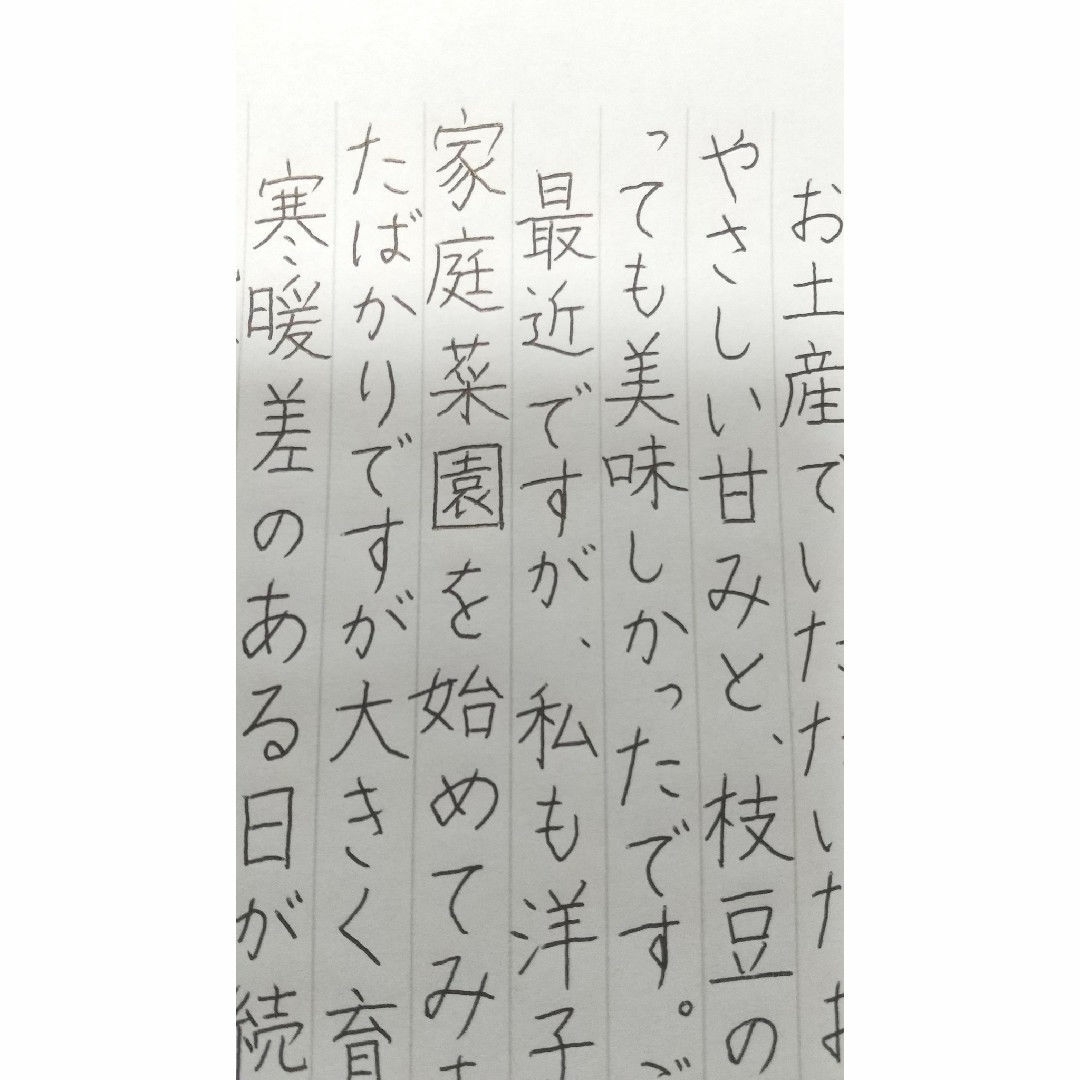 お土産でいただいたお
やさしい甘みと、枝豆の
っても美味しかったです。
最近ですが、私も洋子
家庭菜園を始めてみ
たばかりですが大きく育
寒暖差のある日が続